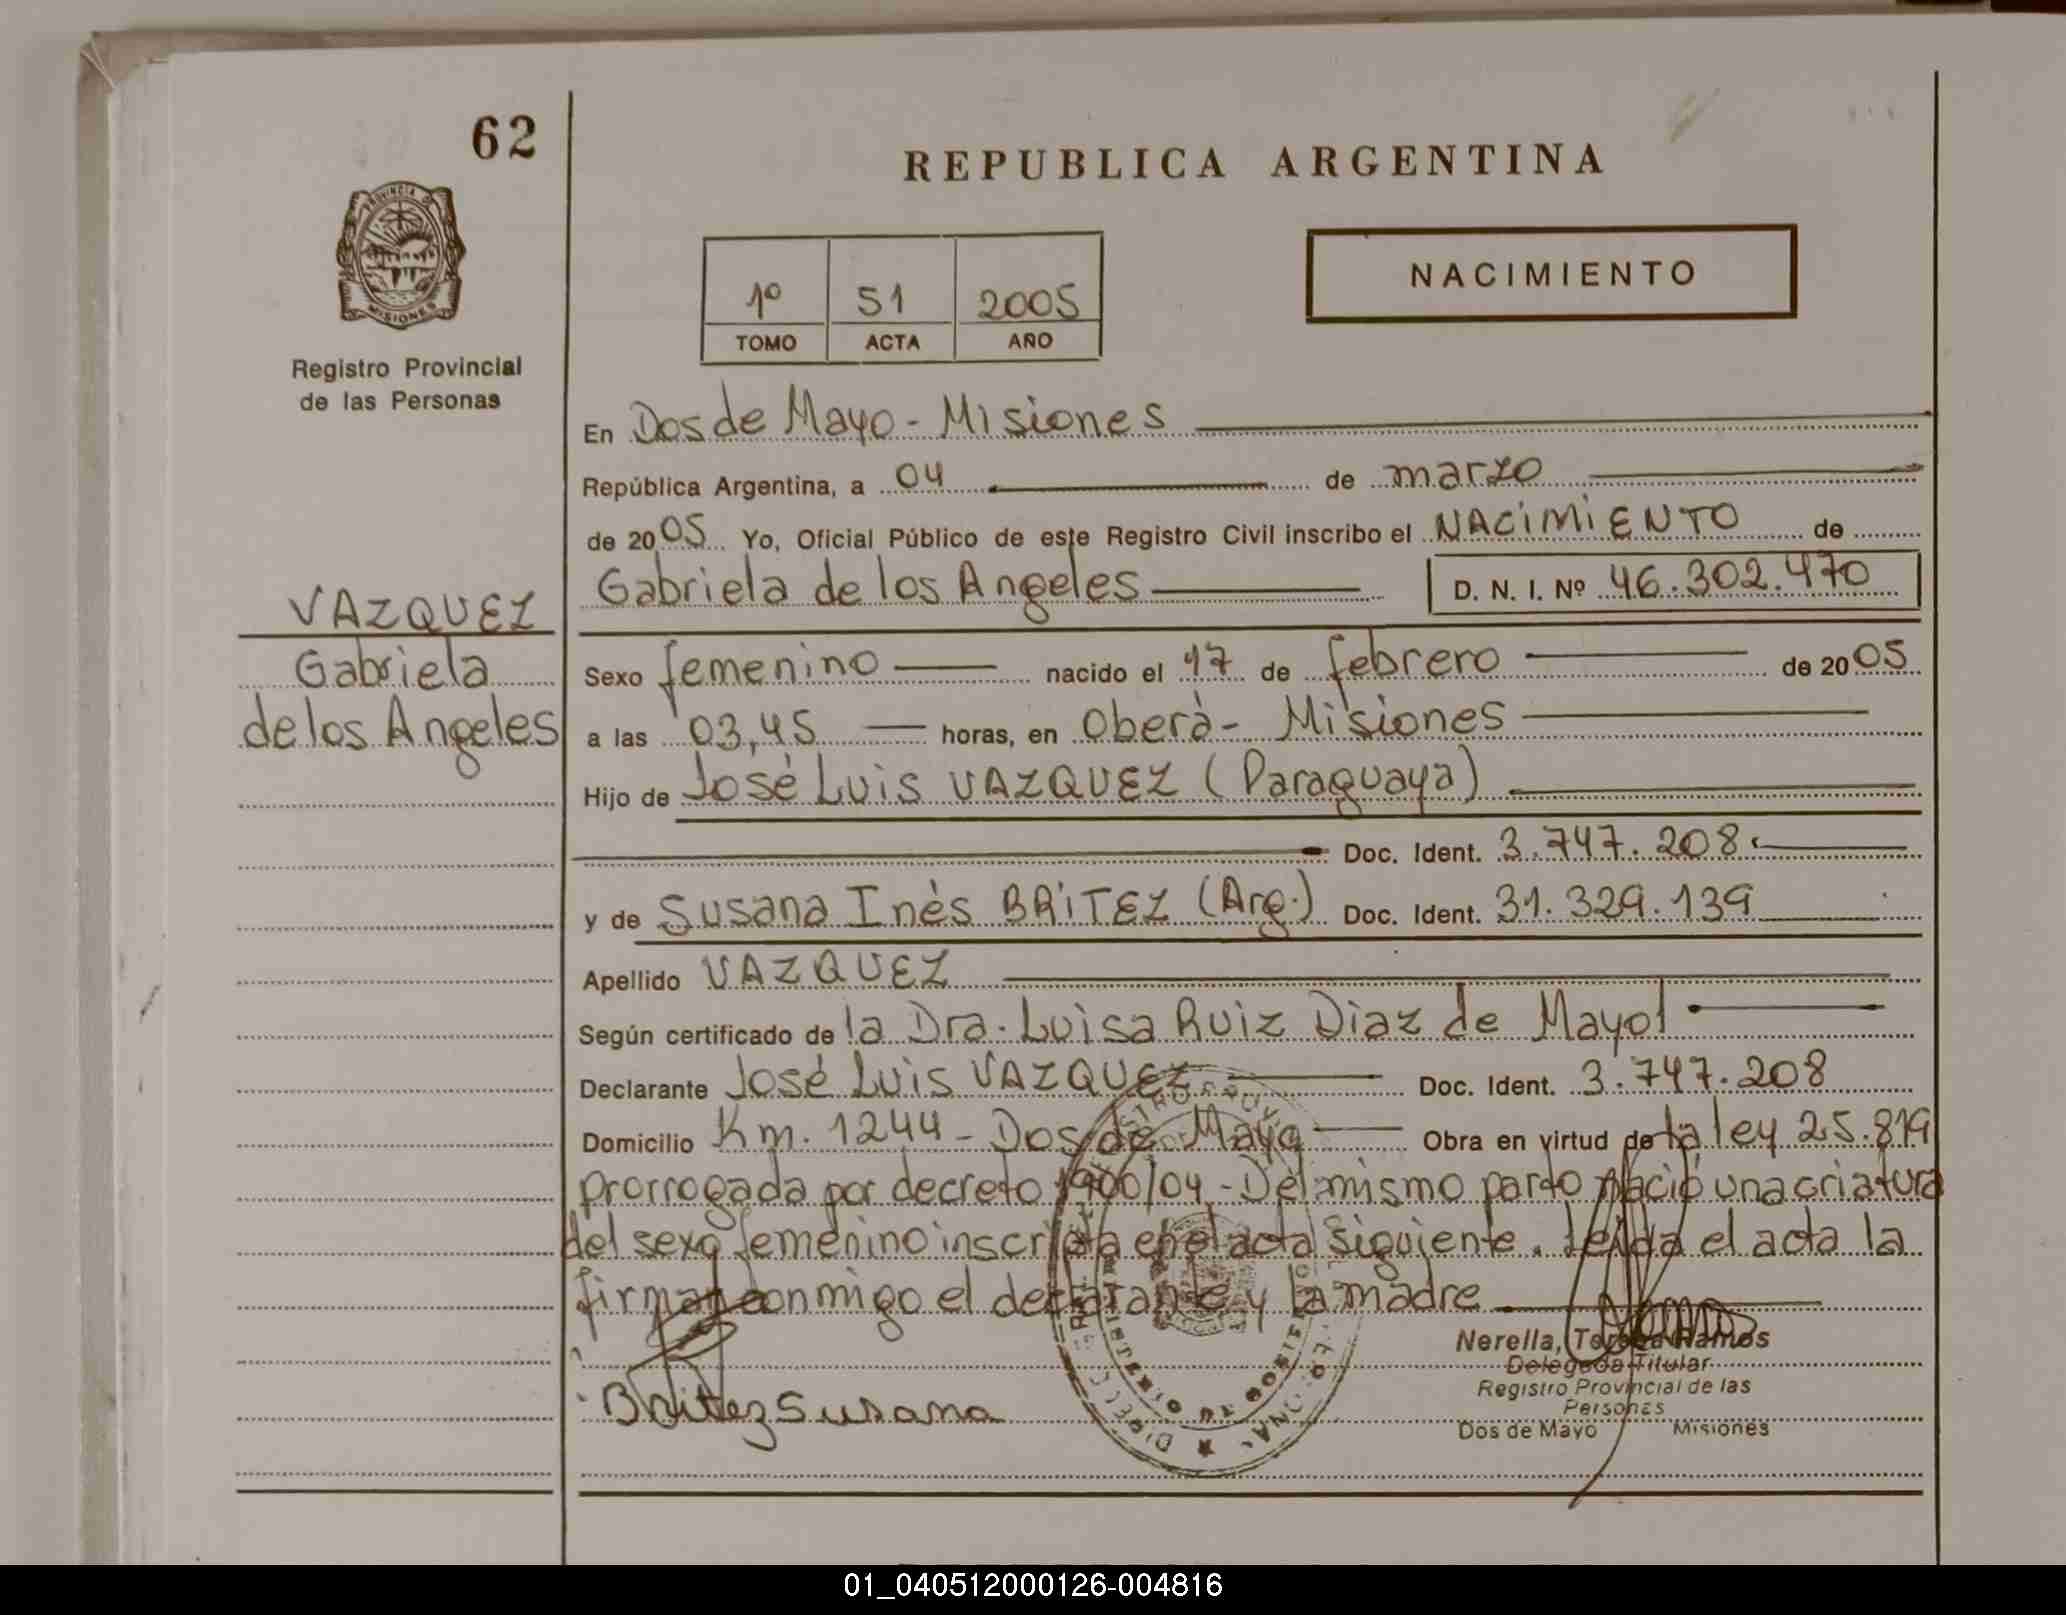 62
REPUBLICA ARGENTINA
PROVINCIA DE
MISIONES
Registro Provincial
de las Personas
1º 51 2005
TOMO ACTA AÑO
NACIMIENTO
En Dos de Mayo - Misiones
República Argentina, a 04 de marzo
de 2005 Yo, Oficial Público de este Registro Civil inscribo el NACIMIENTO de
Gabriela de los Angeles D. N. I. Nº 46.302.470
VAZQUEZ
Gabriela
de los Angeles
Sexo femenino nacido el 17 de febrero de 2005
a las 03,45 horas, en Oberá - Misiones
Hijo de José Luis VAZQUEZ (Paraguaya)
Doc. Ident. 3.747.208
y de Susana Inés BRITEZ (Arg.) Doc. Ident. 31.329.139
Apellido VAZQUEZ
Según certificado de la Dra. Luisa Ruiz Diaz de Mayol
Declarante José Luis VAZQUEZ Doc. Ident. 3.747.208
Domicilio Km. 1244 - Dos de Mayo Obra en virtud de la ley 25.819
prorrogada por decreto 1900/04 - Del mismo parto nació una criatura
del sexo femenino inscripta en el acta siguiente. Leída el acta la
firman conmigo el declarante y la madre
Britez Susana
Nerella, Teresa Ramos
Delegada Titular
Registro Provincial de las
Personas
Dos de Mayo Misiones
MINISTERIO DE GOBIERNO
01_040512000126-004816